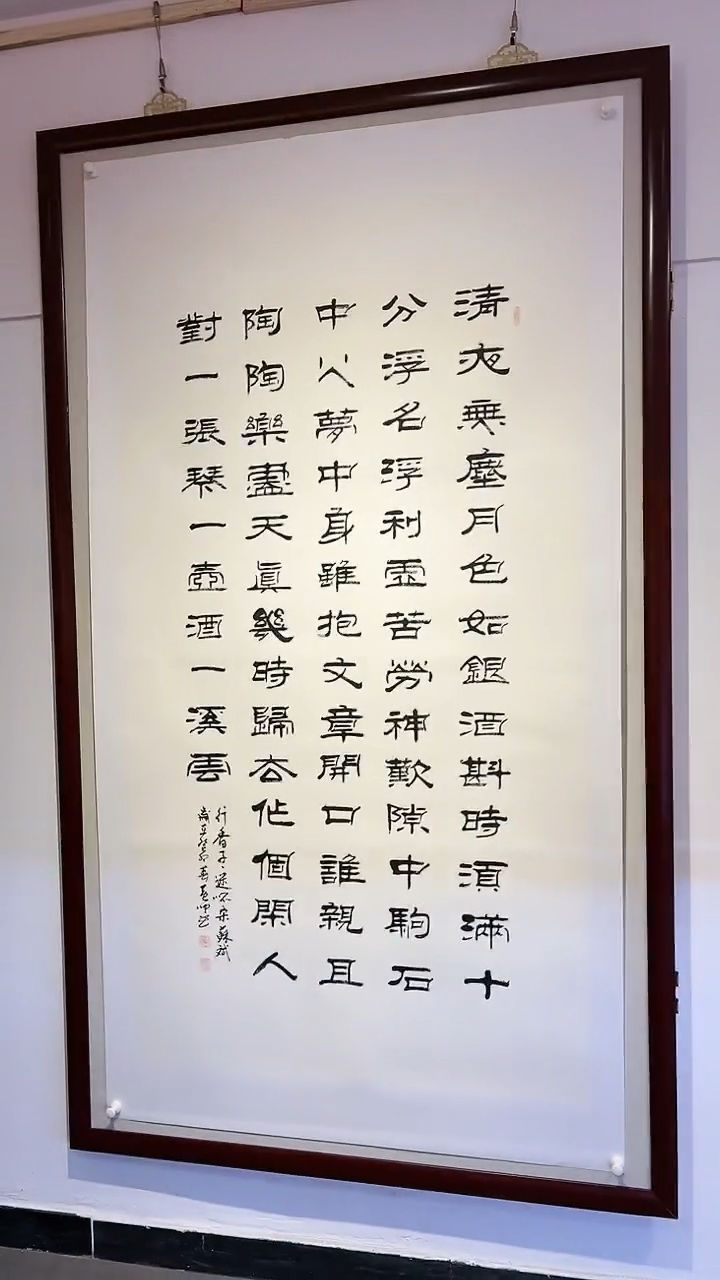 清夜無塵月色如銀酒斟時須滿十
分浮名浮利虛苦勞神歎隙中駒石
中火夢中身雖抱文章開口誰親且
陶陶樂盡天眞幾時歸去作個閑人
對一張琴一壺酒一溪雲
行香子·述怀宋蘇軾
歲在癸卯春